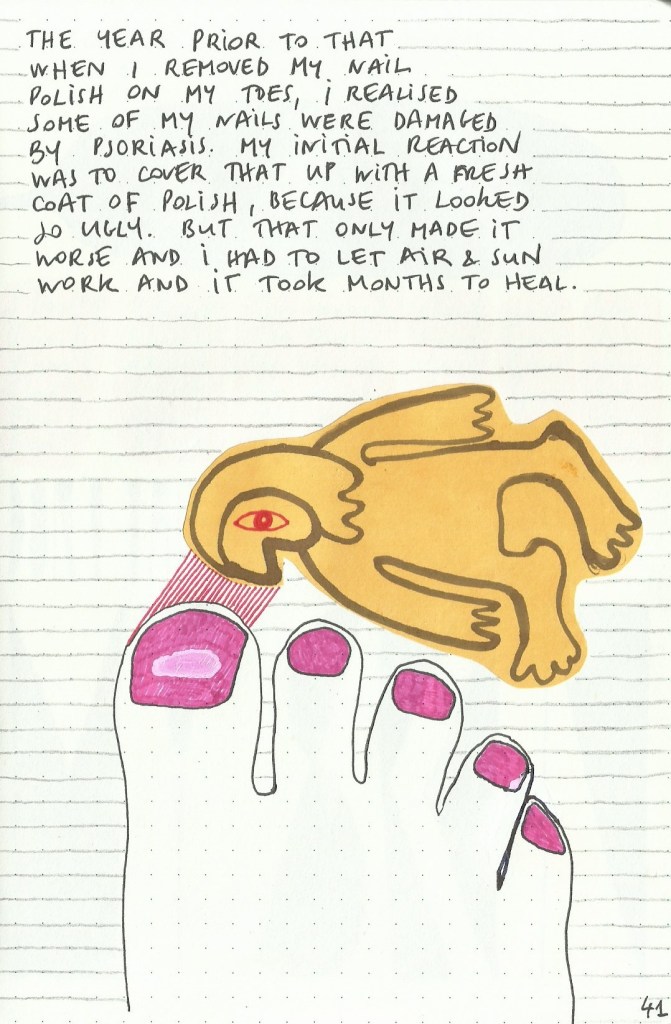 THE YEAR PRIOR TO THAT
WHEN I REMOVED MY NAIL
POLISH ON MY TOES, I REALISED
SOME OF MY NAILS WERE DAMAGED
BY PSORIASIS. MY INITIAL REACTION
WAS TO COVER THAT UP WITH A FRESH
COAT OF POLISH, BECAUSE IT LOOKED
SO UGLY. BUT THAT ONLY MADE IT
WORSE AND I HAD TO LET AIR & SUN
WORK AND IT TOOK MONTHS TO HEAL.
41